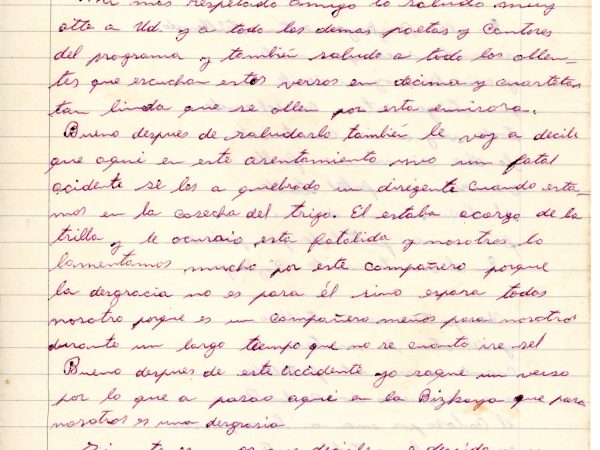 mas respetado amigo lo saludo muy
atte a Ud. y a todo los demas poetas y cantores
del programa y también saludo a todo los ollen-
tes que escuchan estos versos en decima y cuartetas
tan linda que se ollen por esta emisora.
Bueno despues de saludarlo también le voy a decile
que aqui en este asentamiento uvo un fatal
acidente se los a quebrado un dirigente cuando esta-
mos en la cosecha del trigo. El estaba acargo de la
trilla y le ocuraio esta fatolida y nosotros lo
lamentamos mucho por este compañero porque
la desgracia no es para él sino espara todos
nosotro porque es un compañero meños para nosotros
durante un largo tiempo que no se cuanto ire sel
Bueno despues de este accidente yo saque un verso
por lo que a pasao aqui en la Bizkaya que para
nosotros es una desgrasia